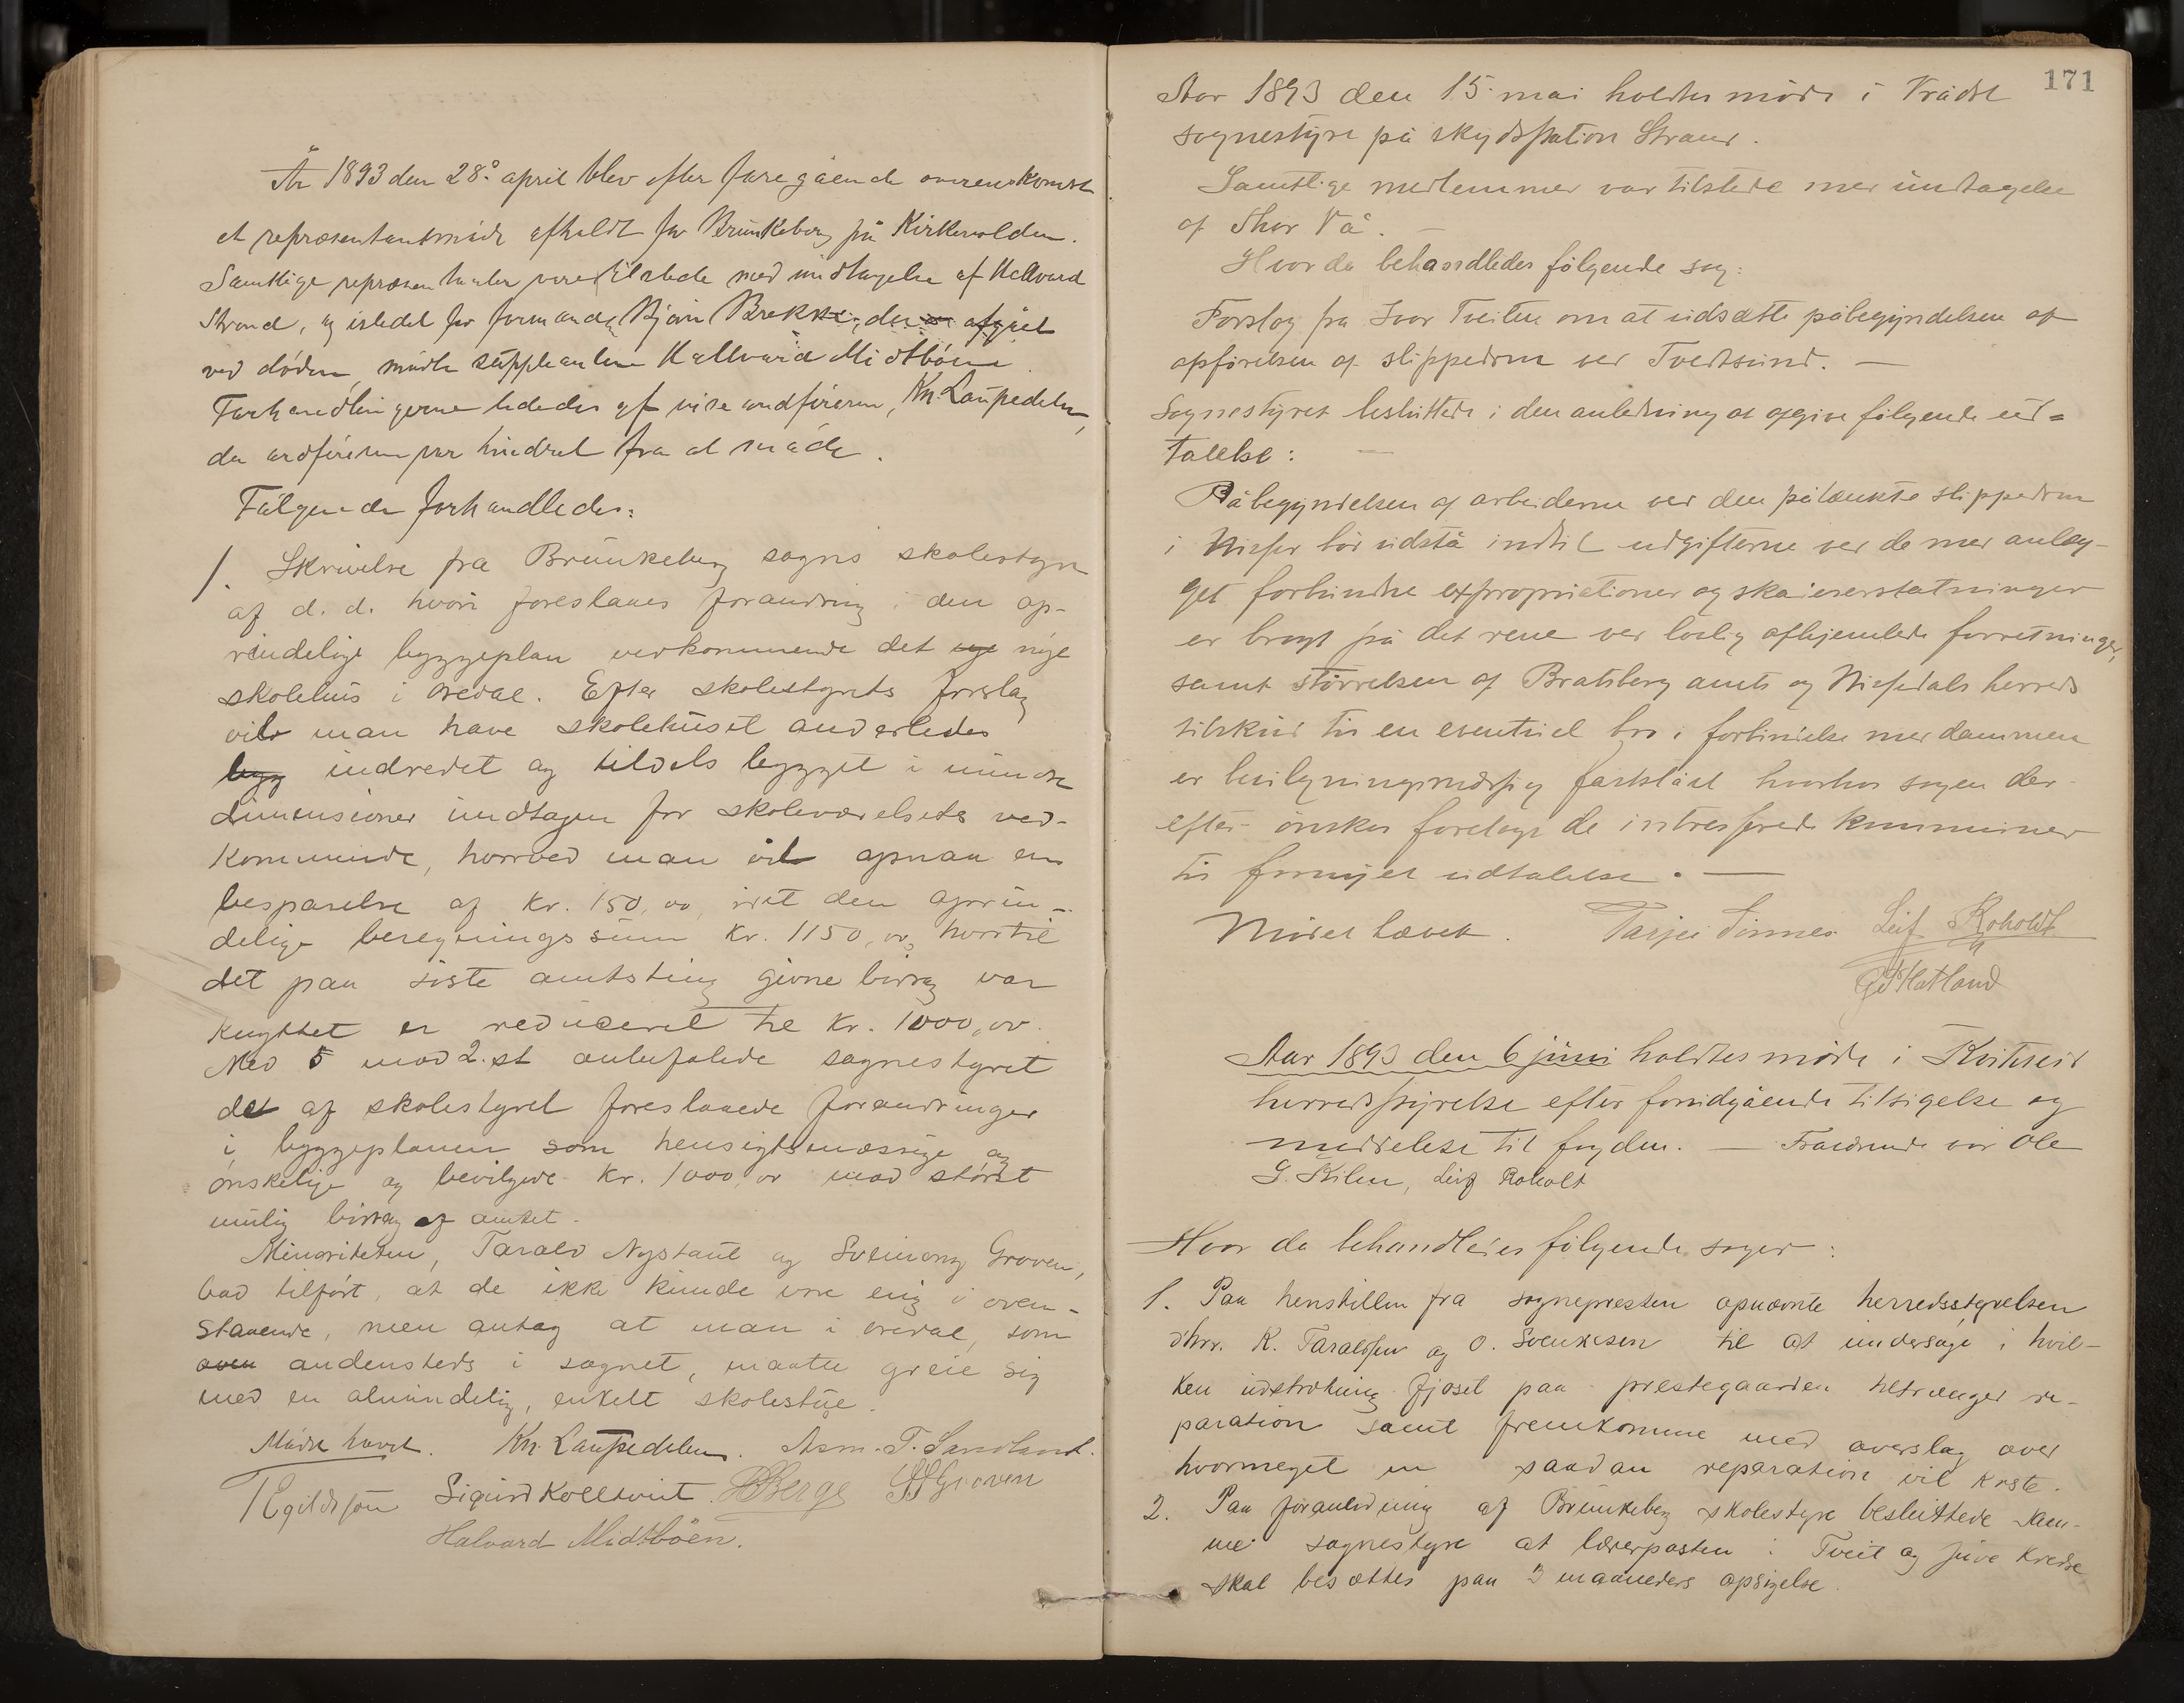 År 1893 den 28º april blev efter foregående overenskomst
et repræsentantmøde afholdt for Brunkeberg på Kirkevolden.
Samtlige repræsentanter vare tilstede med undtagelse af Hallvard
Strand, og istedet for formand Bjørn Brekke, der er afgået
ved døden, mødte suppleanten Hallvard Midtbøen
Forhandlingerne lededes af viseordføreren, Kn. Laupedalen,
da ordføreren var hindret fra at møde.
Følgende forhandledes:
1. Skrivelse fra Brunkeberg sogns skolestyre
af d. d. hvori foreslaaes forandring i den op-
rindelige byggeplan vedkommende det nye
skolehus i Ordal. Efter skolestyrets forslag
vil man have skolehuset anderledes
bygg indredet og tildels bygget i mindre
dimensioner undtagen for skoleværelsets ved-
kommende, hvorved man vil opnaa en
besparelse af kr. 150,00, idet den oprin-
delige beregningssum kr. 1150,00, hvortil
det paa siste amtsting givne bidrag var
knyttet er reduceret til kr. 1000,00.
Med 5 mod 2 st anbefalede sognestyret
de af skolestyret foreslaaede forandringer
i byggeplanen som hensigtsmæssige og
ønskelige og bevilgede kr. 1000,00 mod størst
mulig bidrag af amtet.
Minoriteten, Tarald Nystaul og Sveinung Groven,
bad tilført, at de ikke kunde være enig i oven-
staaende, men antog at man i Ordal, som
oven andensteds i sognet, maatte greie sig
med en almindelig, enkelt skolestue.
Mødet hævet. Kn. Laupedalen. Asm. T. Sandland.
T Egildsjøn Sigurd Kolltveit. B Berge SS Groven
Halvard Midtbøen.
171
Aar 1893 den 15 mai holdtes møde i Vrådal
sognestyre på skydsstation Strand.
Samtlige medlemmer var tilstede med undtagelse
af Thor Vå. —
Hvor da behandledes følgende sag:
Forslag fra Ivor Tveiten om at udsætte påbegyndelsen af
opførelsen af slippedam ved Tvedtsund. —
Sognestyret besluttede i den anledning at afgive følgende ud=
talelse: —
Påbegyndelsen af arbeiderne ved den påtænkte slippedam
i Nisser bør udstå indtil udgifterne ved de med anlæg-
get forbundne expropriationer og skadeserstatninger
er bragt på det rene ved lovlig afhjemlede forretninger,
samt størrelsen af Bratsberg amts og Nissedals herreds
tilskud til en eventuel bro i forbindelse med dammen
er bevilgningsmæssig fastslået hvorhos sagen der-
efter ønskes forelagt de interesserede kommuner
til fornyet udtalelse. —
Mødet hævet. Tarjei Sinnes Leif Roholdt
G. Hatland
Aar 1893 den 6 juni holdtes møde i Kviteseid
herredsstyrelse efter forudgående tilsigelse og
meddelelse til fogden. — Fraværende var Ole
G. Kilen, Leif Roholt
Hvor da behandledes følgende sager:
1. Paa henstillen fra sognepresten opnævnte herredsstyrelsen
dhrr. K. Taraldsen og O. Svenkesen til at undersøge i hvil-
ken udstrækning fjøset paa prestegaarden tiltrænger re-
paration samt fremkomme med overslag over
hvormeget en saadan reparation vil koste.
2. Paa foranledning af Brunkeberg skolestyre besluttede sam-
me sognestyre at lærerposten i Tveit og Juve kredse
skal besættes paa 3 maaneders opsigelse.